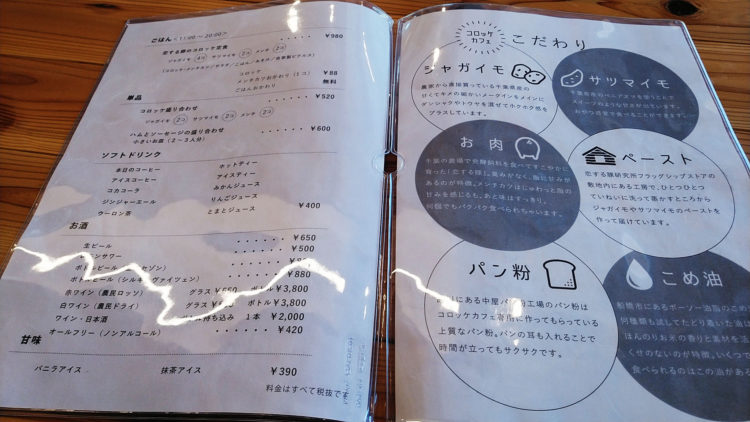 ごはん <11:00〜20:00>
恋する豚のコロッケ定食 ・・・・・ ¥980
ジャガイモ 4コ サツマイモ 2コ メンチ 2コ
コロッケ
メンチカツおかわり(1コ) ¥88
ごはんおかわり 無料
単品
コロッケ盛り合わせ ・・・・・・ ¥520
ジャガイモ 2コ サツマイモ 2コ メンチ 2コ
ハムとソーセージの盛り合わせ ・・・・・ ¥600
小さいお皿(2〜3人分)
ソフトドリンク
本日のコーヒー ホットティー
アイスコーヒー アイスティー
コカコーラ みかんジュース
ジンジャーエール りんごジュース
ウーロン茶 とまとジュース ・・・・・ ¥400
お酒
生ビール ・・・・・・ ¥650
レモンサワー ・・・・・・ ¥500
ボトルビール
ボトルビール(シルキ ヴァイツェン) ・・・・・・ ¥880
赤ワイン(農民ロッソ) グラス ボトル ¥3,800
白ワイン(農民ドライ) グラス ボトル ¥3,800
ワイン・日本酒 持ち込み 1本 ¥2,000
オールフリー(ノンアルコール) ・・・・・・ ¥420
甘味
バニラアイス 抹茶アイス ¥390
料金はすべて税抜です
コロッケ
カフェ
こだわり
ジャガイモ
農家から直接買っている千葉県産の
甘くてキメの細かいメークインをメインに
ダンシャクやトウヤを混ぜてホクホク感を
プラスしています。
サツマイモ
千葉県産のベニアズマを使うことで
スイーツのような甘さが出ています。
おやつ感覚で食べることができます。
お肉
千葉の農場で発酵飼料を食べてすこやかに
育った「恋する豚」。臭みがなく、脂に甘みが
あるのが特徴。メンチカツはじゅわっと脂の
甘みを感じるも、あと味はすっきり。
何個でもパクパク食べられちゃいます。
ペースト
恋する豚研究所フラッグシップストアの
敷地内にある工房で、ひとつひとつ
ていねいに洗って蒸かすところから
ジャガイモやサツマイモのペーストを
作って届けています。
パン粉
にある中屋パン粉工場のパン粉は
コロッケカフェ専用に作ってもらっている
上質なパン粉。パンの耳も入れることで
時間が立ってもサクサクです。
こめ油
船橋市にあるボーソー油脂のこめ
何種類も試してたどり着いた油
ほんのりお米の香りと素材の
くせのないのが特徴。いくつ
食べられるのはこの油があ